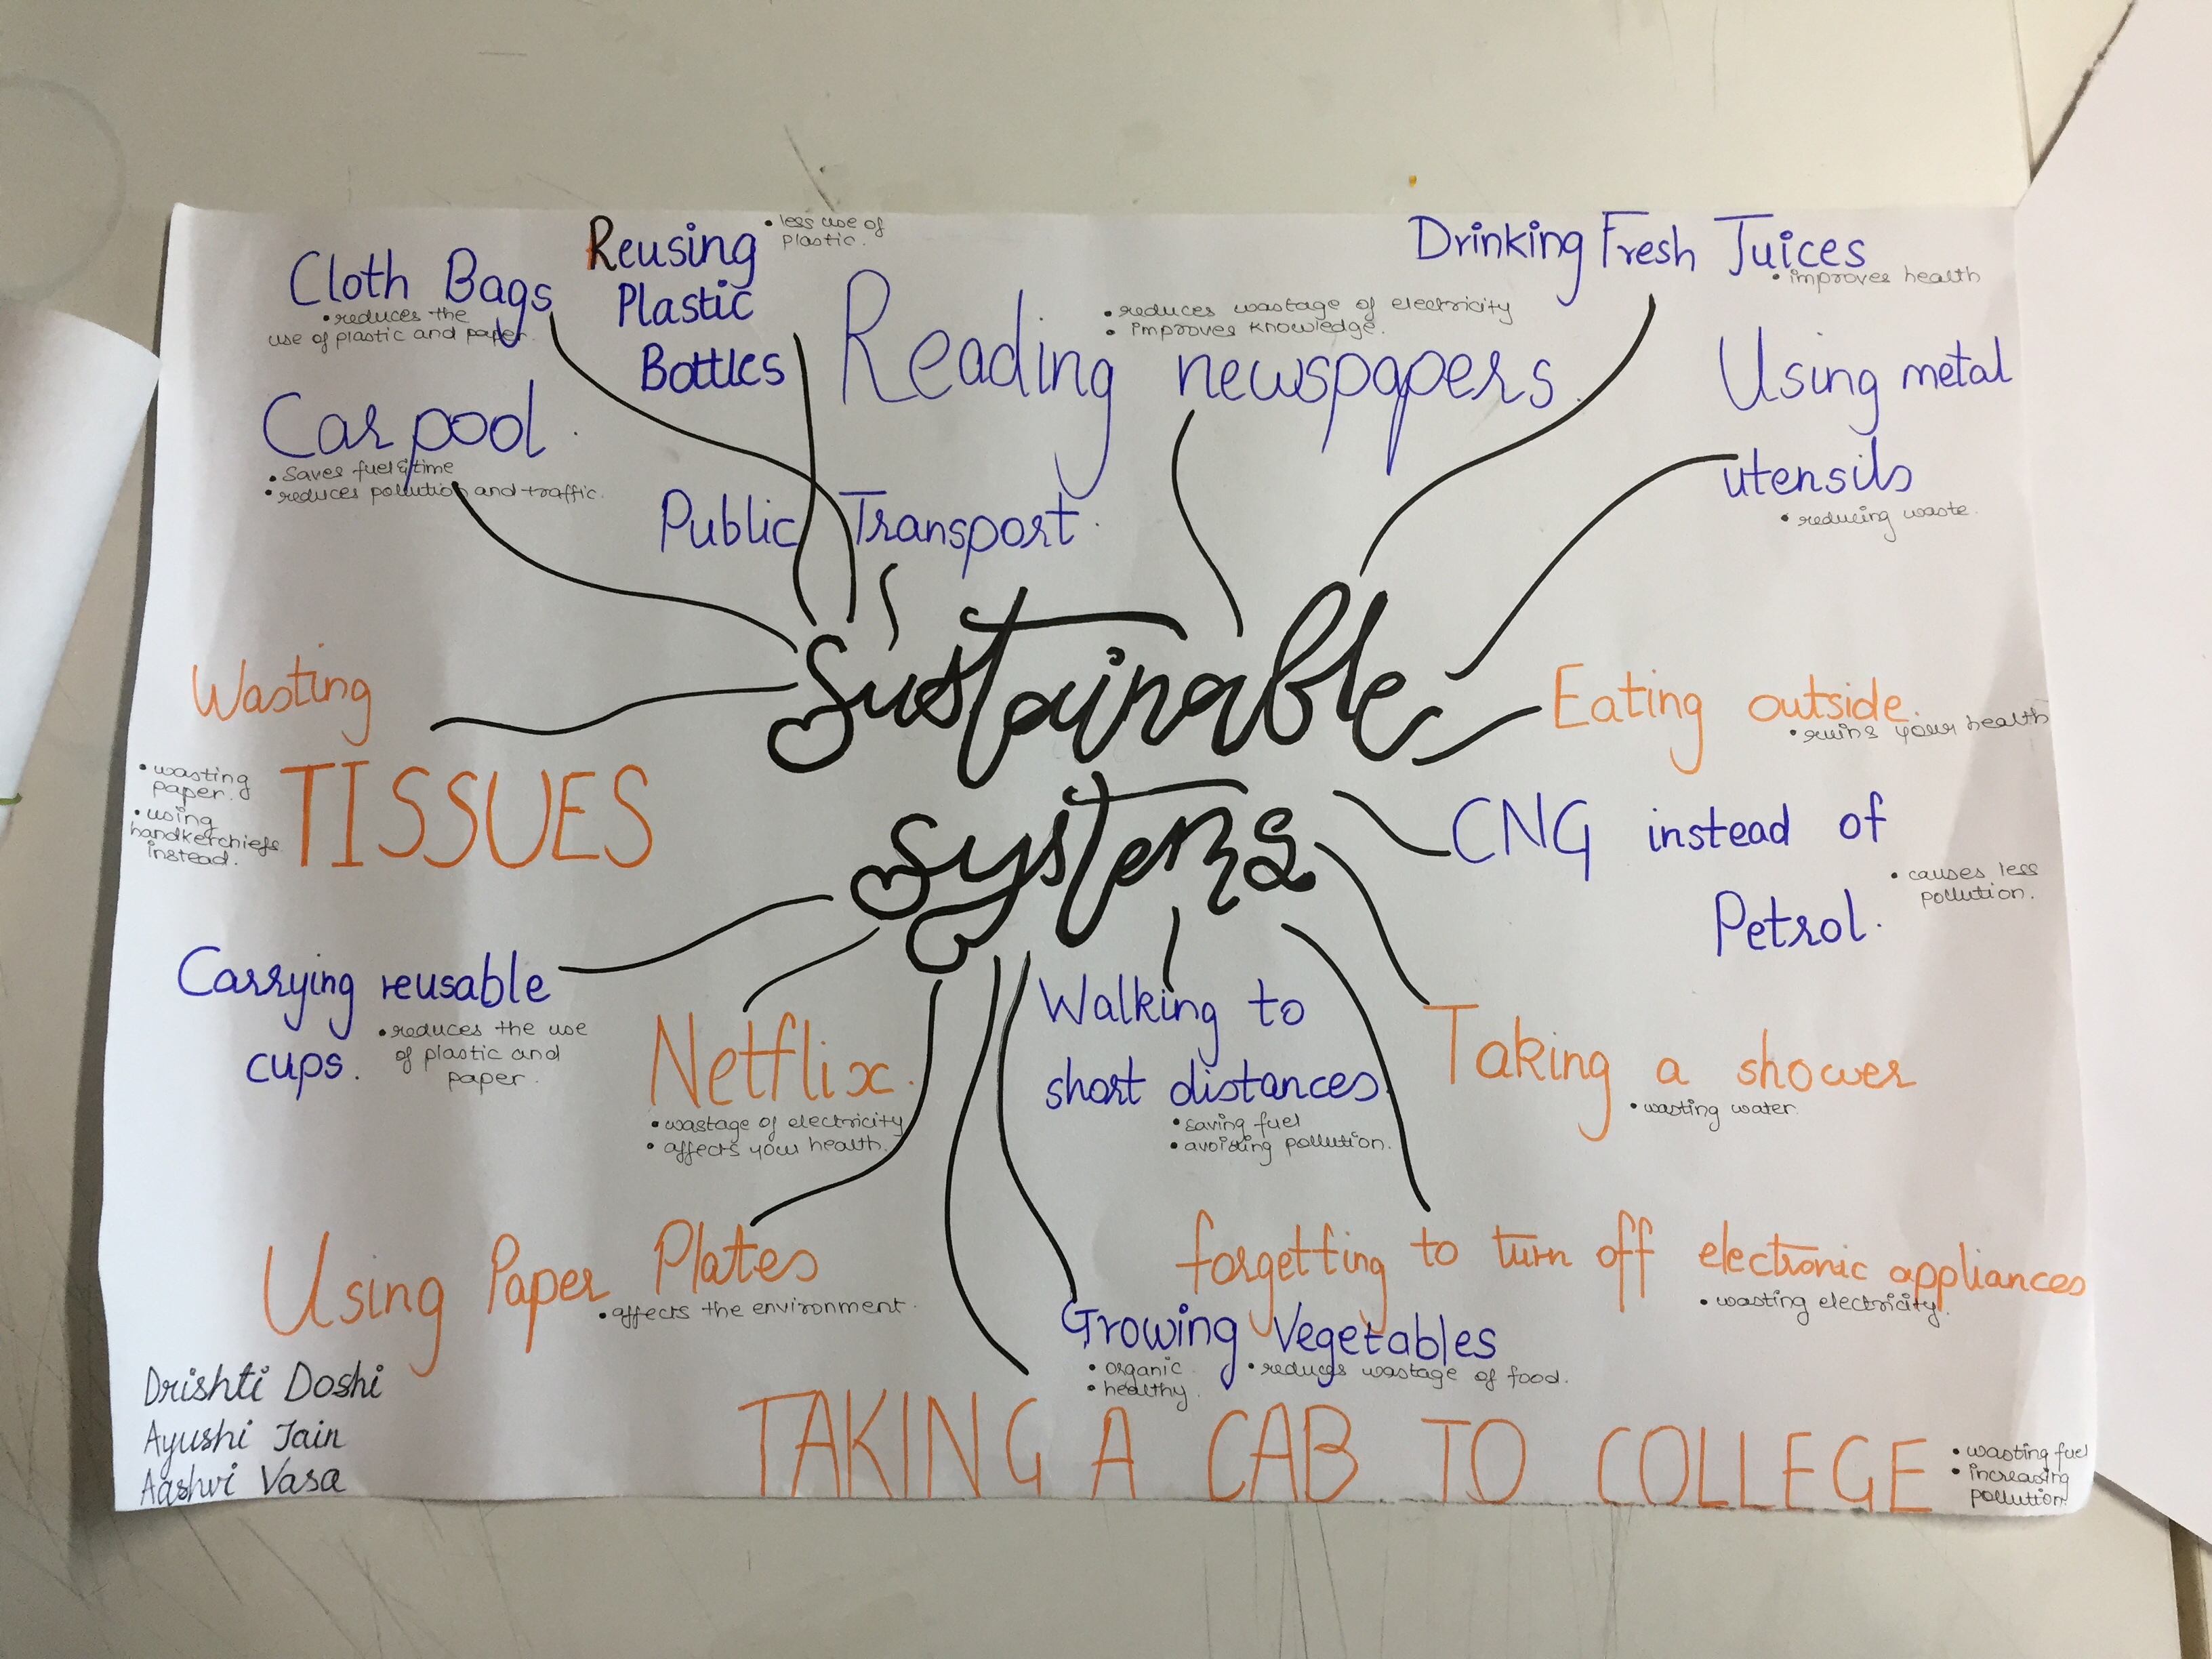 Cloth Bags
• reduces the
use of plastic and paper.
Reusing
Plastic
Bottles
• less use of
plastic.
Reading newspapers.
• reduces wastage of electricity
• improves knowledge.
Drinking Fresh Juices
• improves health
Using metal
utensils
• reducing waste.
Car pool.
• Saves fuel & time
• reduces pollution and traffic.
Public Transport.
Sustainable
Systems
Wasting
TISSUES
• wasting
paper.
• using
handkerchiefs
instead.
Eating outside.
• ruins your health
CNG instead of
Petrol.
• causes less
pollution.
Carrying reusable
cups.
• reduces the use
of plastic and
paper.
Netflix.
• wastage of electricity
• affects your health.
Walking to
short distances.
• saving fuel
• avoiding pollution.
Taking a shower
• wasting water.
Using Paper Plates
• affects the environment.
forgetting to turn off electronic appliances
• wasting electricity.
Growing Vegetables
• organic
• healthy.
• reduces wastage of food.
TAKING A CAB TO COLLEGE
• wasting fuel
• increasing
pollution
Drishti Doshi
Ayushi Jain
Aashvi Vasa